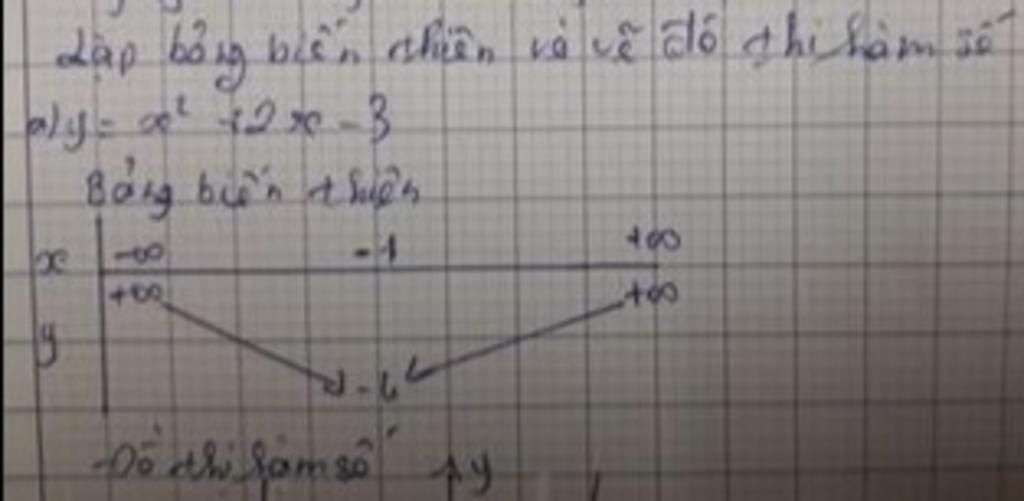 Lập bảng biến thiên và vẽ đồ thị hàm số
a) y = x² + 2x - 3
Bảng biến thiên
x -∞ -1 +∞
+∞ +∞
y
-4
Đồ thị hàm số y